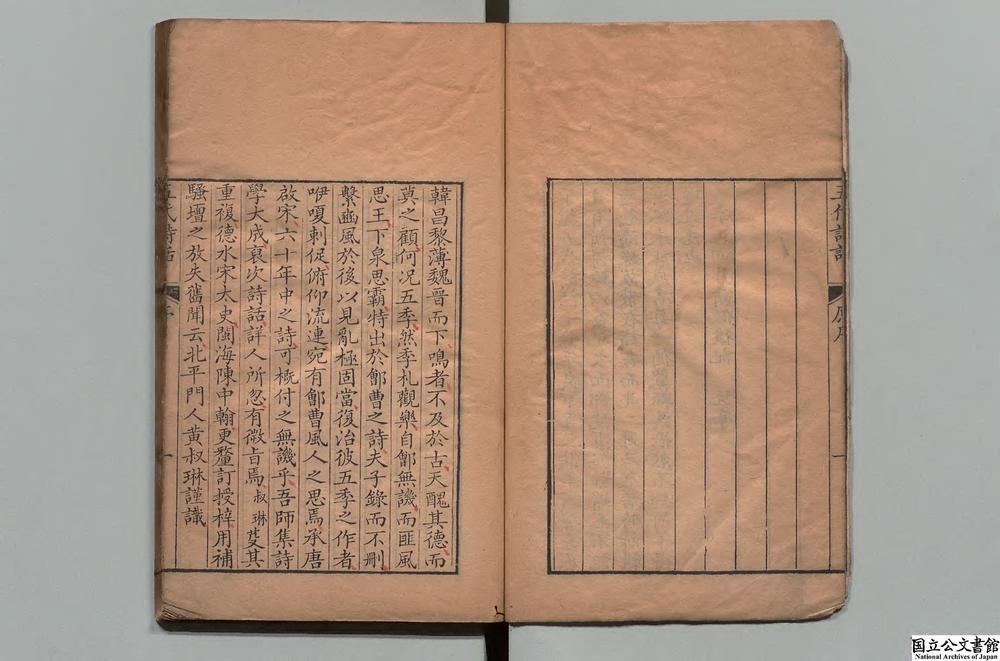 五代詩話
原序
一
韓昌黎薄魏晉而下鳴者不及於古天醜其德而
莫之顧何況五季然季札觀樂自鄶無譏而匪風
思王下泉思霸特出於鄶曹之詩夫子錄而不刪
繫豳風於後以見亂極固當復治彼五季之作者
咿嗄刺促俯仰流連宛有鄶曹風人之思焉承唐
啟宋六十年中之詩可概付之無譏乎吾師集詩
學大成裒次詩話詳人所忽有微旨焉叔琳芟其
重複德水宋太史閩海陳中翰更釐訂授梓用補
騷壇之放失舊聞云北平門人黃叔琳謹識
五代詩話
序
一
国立公文書館
National Archives of Japan